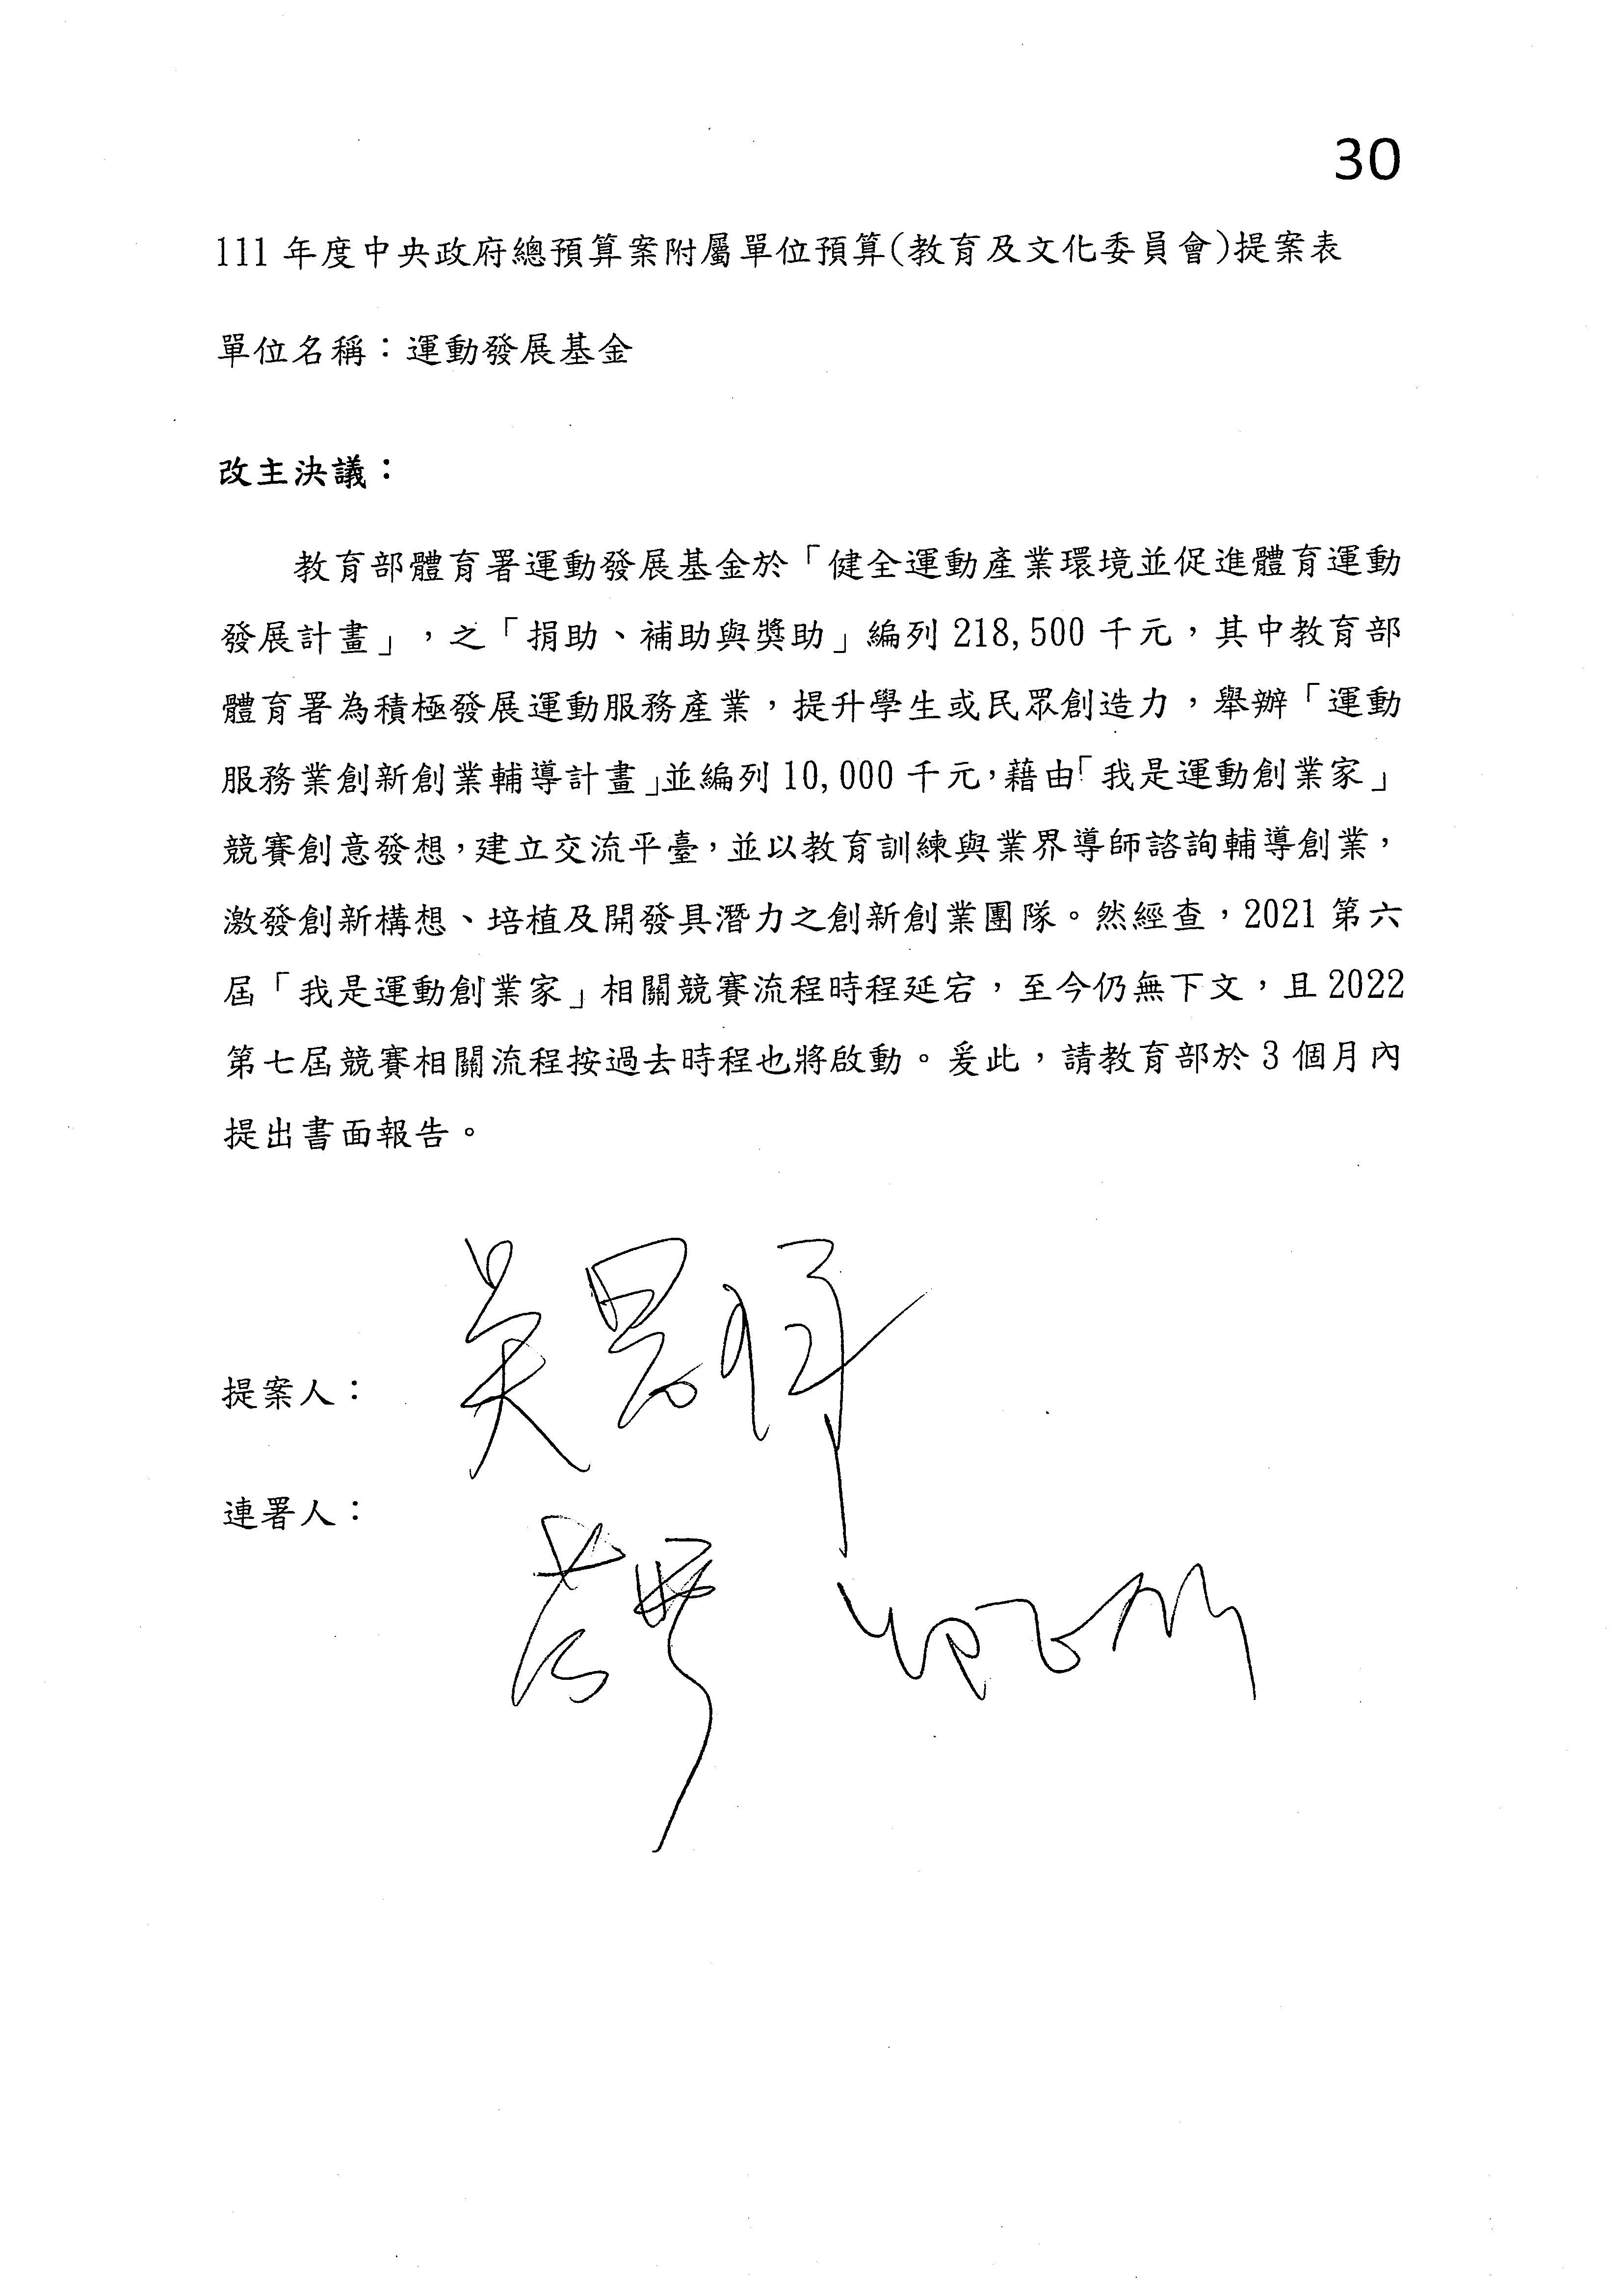 30
111 年度中央政府總預算案附屬單位預算(教育及文化委員會)提案表
單位名稱：運動發展基金
改主決議：
教育部體育署運動發展基金於「健全運動產業環境並促進體育運動
發展計畫」，之「捐助、補助與獎助」編列 218,500 千元，其中教育部
體育署為積極發展運動服務產業，提升學生或民眾創造力，舉辦「運動
服務業創新創業輔導計畫」並編列 10,000 千元，藉由「我是運動創業家」
競賽創意發想，建立交流平臺，並以教育訓練與業界導師諮詢輔導創業，
激發創新構想、培植及開發具潛力之創新創業團隊。然經查，2021 第六
屆「我是運動創業家」相關競賽流程時程延宕，至今仍無下文，且 2022
第七屆競賽相關流程按過去時程也將啟動。爰此，請教育部於 3 個月內
提出書面報告。
提案人：
連署人：